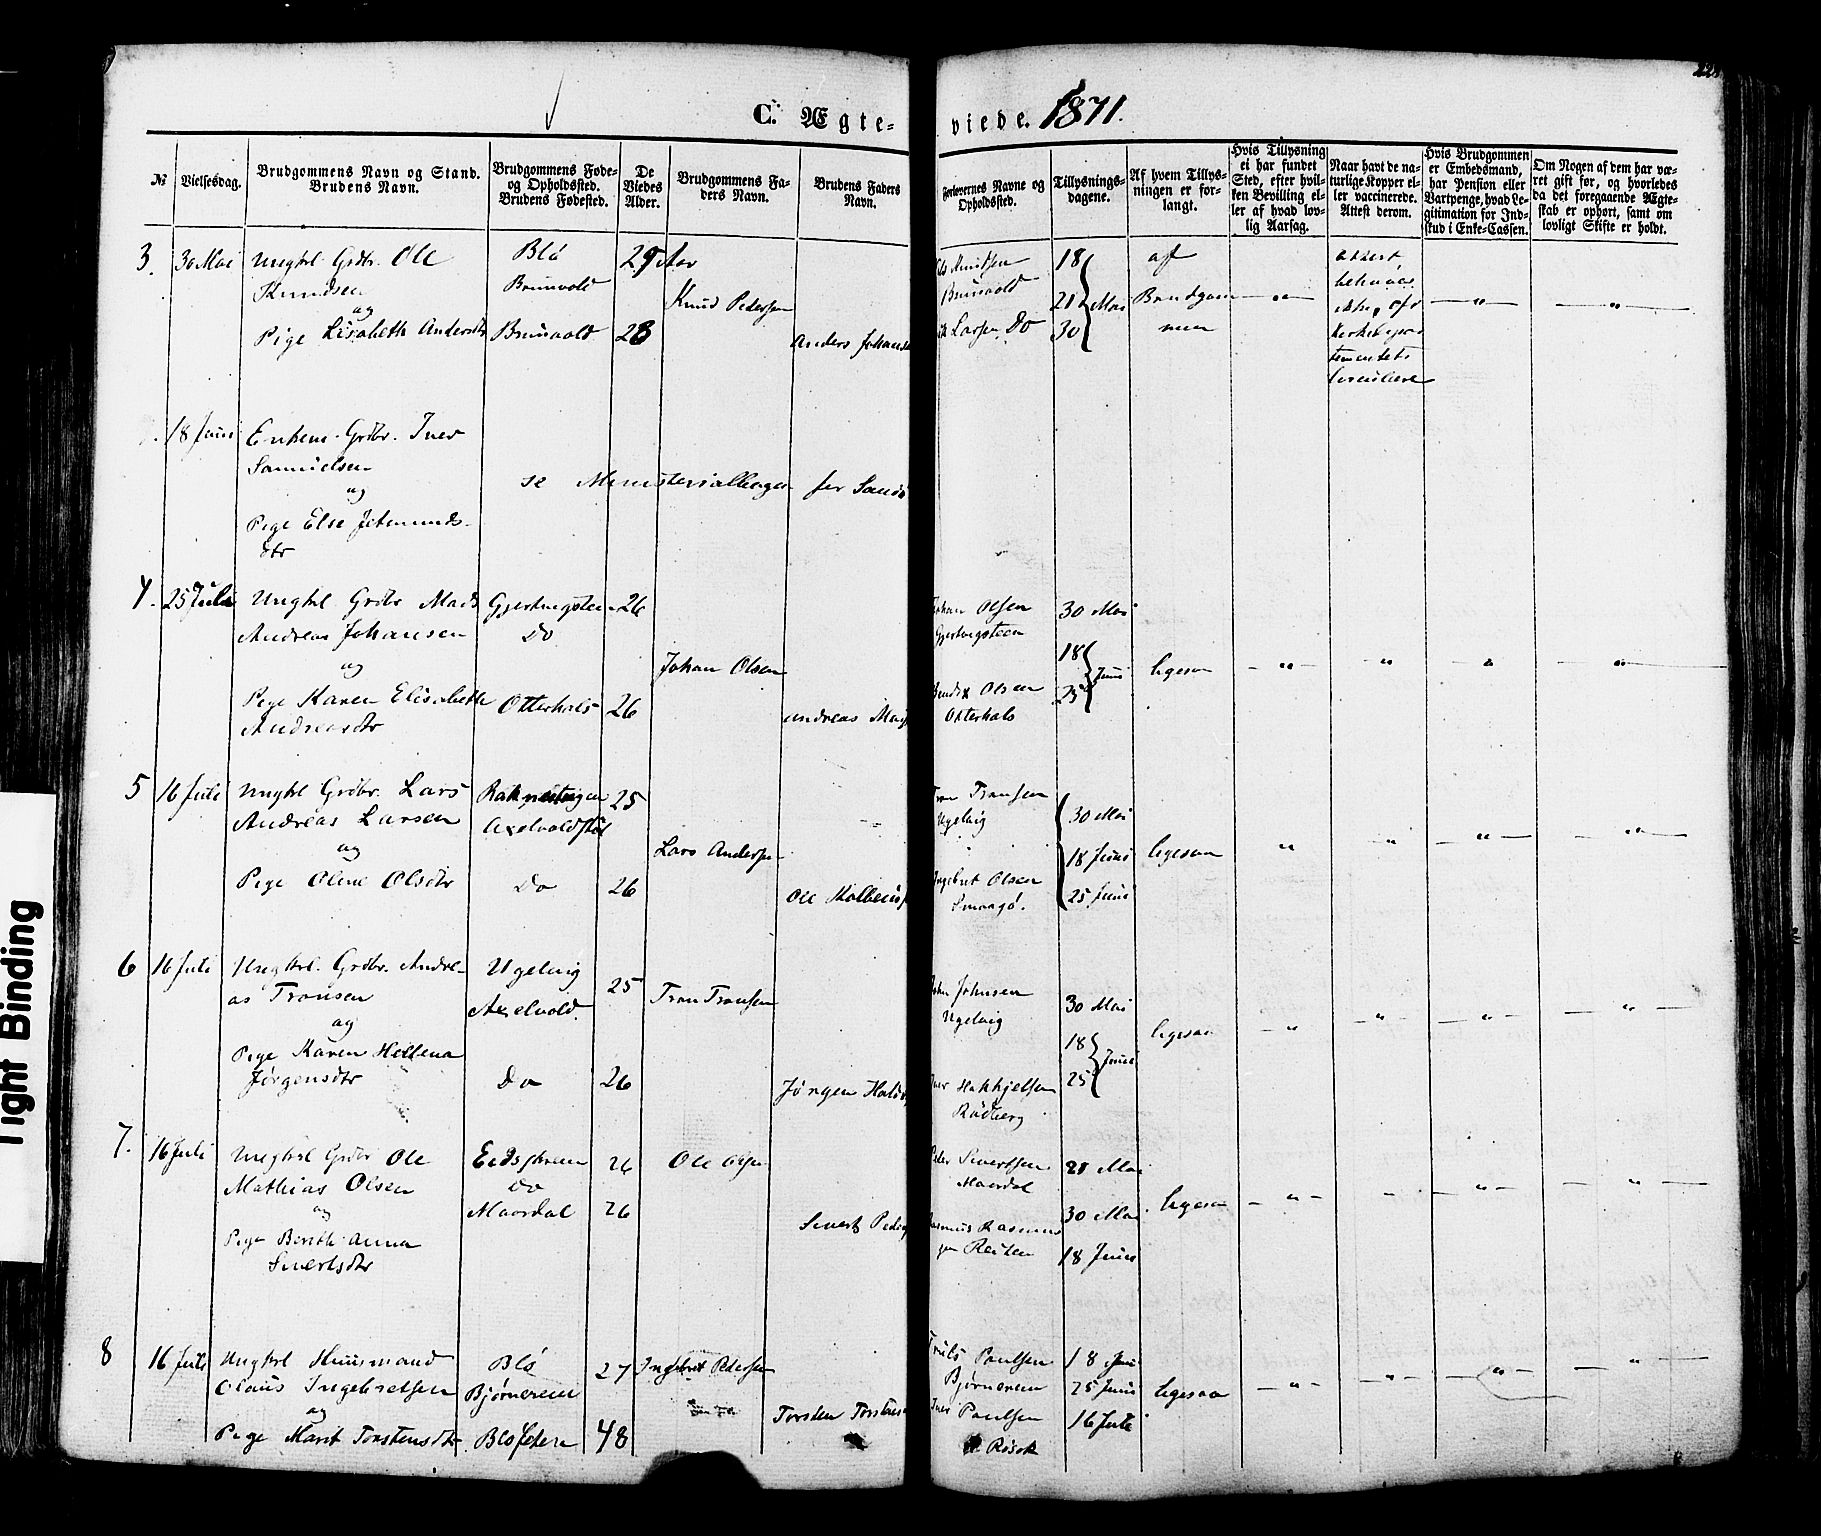 C. Ægte-viede. 1871.
№
Vielsesdag.
Brudgommens Navn og Stand.
Brudens Navn.
Brudgommens Føde-
og Opholdsted.
Brudens Fødested.
De
Viedes
Alder.
Brudgommens Fa-
ders Navn.
Brudens Faders
Navn.
Forlovernes Navne og
Opholdsted.
Tillysnings-
dagene.
Af hvem Tillys-
ningen er for-
langt.
Hvis Tillysning
ei har fundet
Sted, efter hvil-
ken Bevilling el-
ler af hvad lov-
lig Aarsag.
Naar havt de na-
turlige Kopper el-
ler vaccinerede.
Attest derom.
Hvis Brudgommen
er Embedsmand,
har Pension eller
Vartpenge, hvad Le-
gitimation for Ind-
skud i Enke-Cassen.
Om Nogen af dem har væ-
ret gift før, og hvorledes
da det foregaaende Ægte-
skab er ophørt, samt om
lovligt Skifte er holdt.
3. 30 Mai Ungkl Grdbr. Ole
Knudsen
og
Pige Lisabeth Andersdtr
Blø
Brunvold
Brunvold
29 Aar
28
Knud Pedersen
Anders Johans
Knudsen
Brunvold
Larsen Do
18
21 Mai
30
af
Brudgom
men
attest
behøves
ikke, efr
tementets
18 Juni Enkem. Grdbr. Iver
Samuelsen
og
Pige Else
dtr
se Ministerialbogen for Sandø
4. 25 Juli Ungkl Grdbr Mads
Andreas Johansen
og
Pige Karen Elisabeth
Andreasdtr
Gjertvigsteen
Do
Otterhals
26
26
Johan Olsen
Andreas
Johan Olsen
Gjertvigsteen
Olsen
Otterhals
30 Mai
18
25 Juni
ligesaa
5 16 Juli Ungkl Grdbr. Lars
Andreas Larsen
og
Pige Oline Olsdtr
Do
25
26
Lars Andersen
Ole
Tron Tronsen
Ugelvig
Ingebret Olsen
Smaagø.
30 Mai
18 Juni
25 Juni
ligesaa
6 16 Juli Ungkl. Grdbr. Andre-
as Tronsen
og
Pige Karen Hellena
Jørgensdtr
Ugelvig
Axelvold.
Do
25
26
Tron Tronsen
Jørgen
John Johnsen
Ugelvig
Iver
Rødberg
30 Mai
18
25 Juni
ligesaa
7. 16 Juli Ungkl Grdbr Ole
Mathias Olsen
og
Pige Berith Anna
Sivertsdtr
Eidskrem
Do
Maardal
26
26
Ole Olsen
Sivert Peders
Peder Sivertsen
Maardal
Rasmus Rasmus
sen Reiten
28 Mai
30 Mai
18 Juni
ligesaa
8 16 Juli Ungkl Huusmand
Olaus Ingebretsen
og
Pige Marit Torstensdtr
Blø
Bjørnerem
27
48
Ingebret Pedersen
Torsten Torstens
Truls Paulsen
Bjørnerem
Iver Paulsen
Røsok
18 Juni
25 Juni
16 Juli
ligesaa
Tight Binding